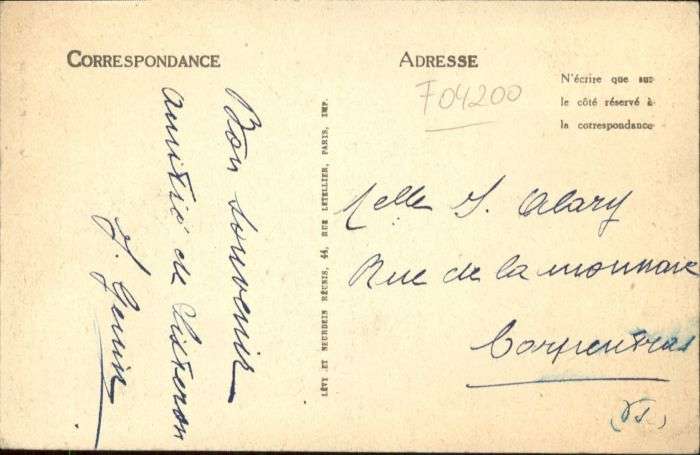 CORRESPONDANCE
Bon souvenir
amitié de Sisteron
J. Genin
LÉVY ET NEURDEIN RÉUNIS, 44, RUE LETELLIER, PARIS, IMP.
ADRESSE
F04200
N'écrire que sur
le côté réservé à
la correspondance
Melle J. Alary
Rue de la monnaie
Carpentras